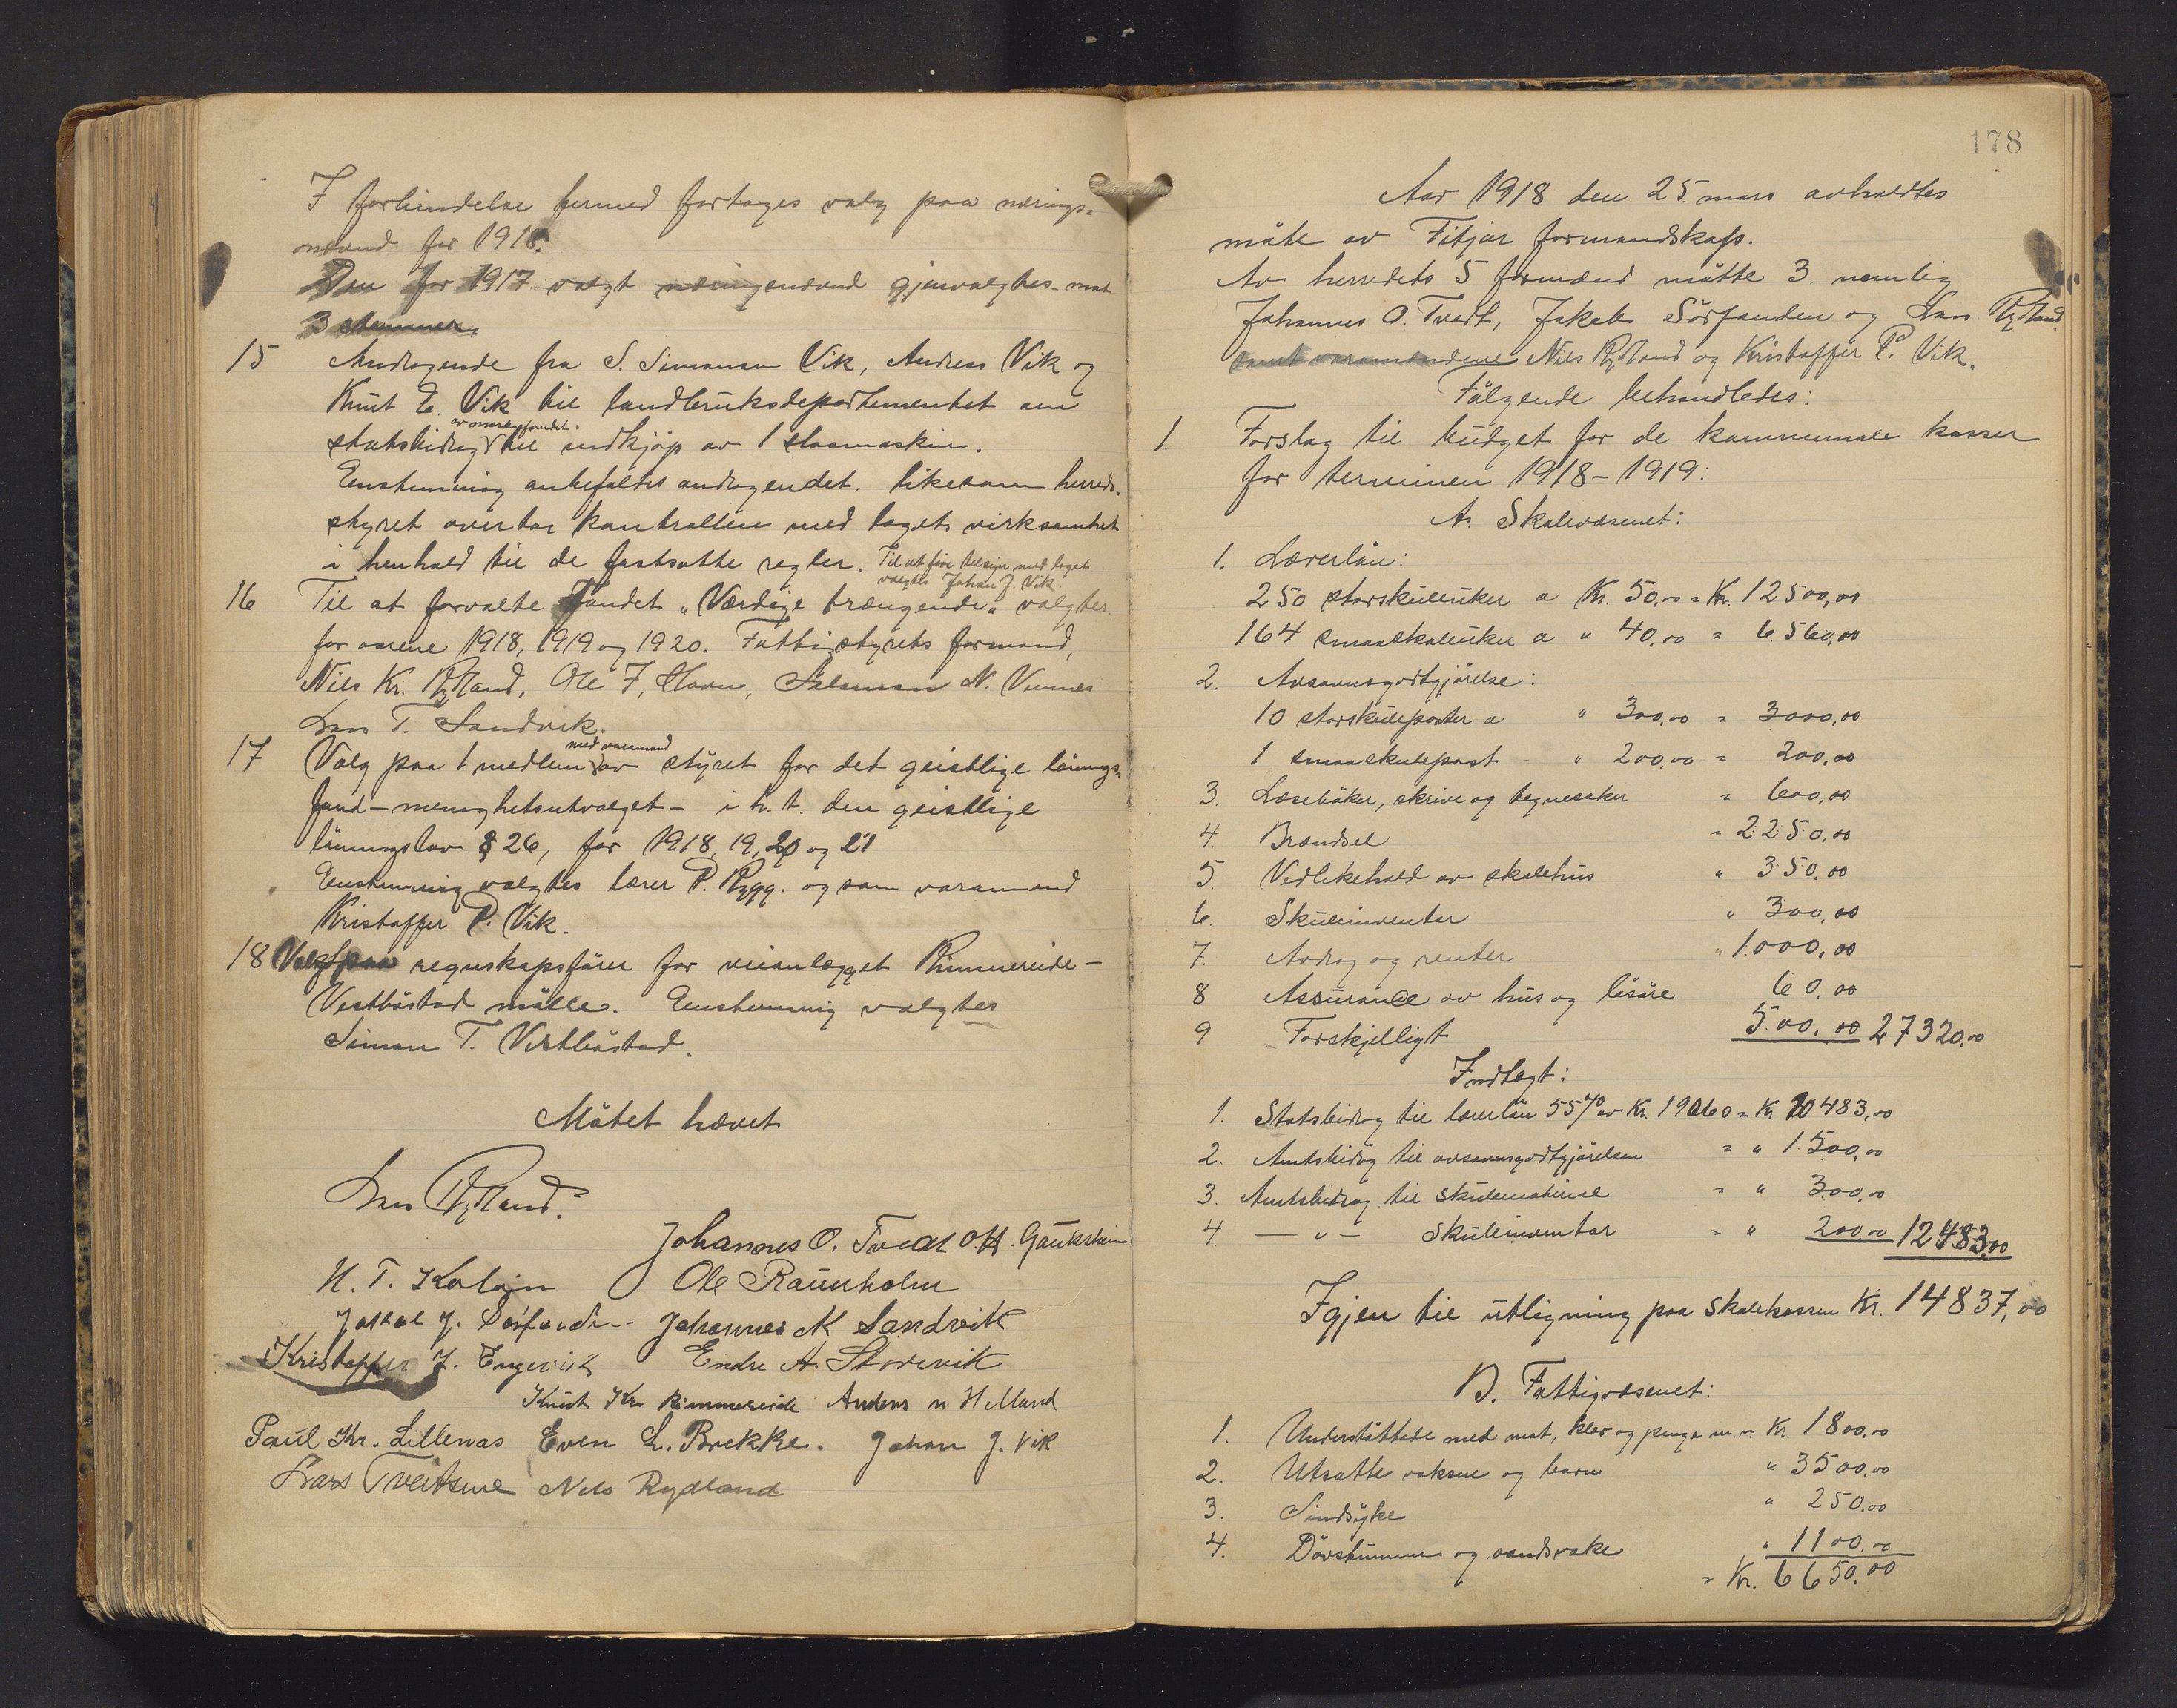 I forbindelse hermed fortages valg paa nærings=
nævnd for 1918.
Den for 1917 valgt næringsnævnd gjenvalgtes mot
3 stemmer.
15 Andragende fra S. Simonsen Vik, Andreas Vik og
Knut E. Vik til landbruksdepartementet om
statsbidrag til indkjøp av 1 slaamaskin.
Enstemmig anbefaltes andragendet, likesom herreds-
styret overtar kontrollen med lagets virksomhet
i henhold til de fastsatte regler. Til at føre tilsyn med laget
valgtes Johan J. Vik.
16 Til at forvalte fondet "Værdige trængende" valgtes
for aarene 1918, 1919 og 1920. Fattigstyrets formand,
Nils Kr. Rydland, Ole J. Havn, Salomon N. Vennes
Lars T. Sandvik.
med varamand
17 Valg paa 1 medlem av styret for det geistlige lønnings-
fond - menighetsutvalget - i h. t. den geistlige
lønningslov § 26, for 1918, 19, 20 og 21
Enstemmig valgtes lærer P. Rygg. og som varamand
Kristoffer P. Vik.
18 Valg paa regnskapsfører for veianlægget Rimmereide -
Vestbøstad mølle. Enstemmig valgtes
Simon T. Vestbøstad.
Møtet hævet
Lars Rydland.
Johannes O. Tvedt O. H. Gaukstein
Ole Raunholm
Jakob J. Sørfonden Johannes M Sandvik
Kristoffer J. Engevik Endre A. Storevik
Knut Kr. Rimmereide Anders N. Helland
Paul Kr. Lillenas Even L. Brekke. Johan J. Vik
Lars Tveitene Nils Rydland
178
Aar 1918 den 25. mars avholdtes
møte av Fitjar formandskap.
Av herredets 5 formænd møtte 3 nemlig
Johannes O. Tvedt, Jakob Sørfonden og Lars Rydland
samt varamændene Nils Rydland og Kristoffer P. Vik.
Følgende behandledes:
1. Forslag til budget for de kommunale kasser
for terminen 1918 - 1919:
A. Skolevæsenet:
1. Lærerløn:
250 storskuleuker a Kr. 50,00 = Kr. 12500,00
164 smaaskoleuker a " 40,00 = 6.560,00
2. Avsavnsgodtgjørelse:
10 storskuleposter a " 300,00 = 3000,00
1 smaaskulepost - " 200,00 = 200,00
3. Læsebøker, skrive og tegnesaker = 600,00
4. Brændsel = 2250,00
5. Vedlikehold av skolehus " 350,00
6. Skuleinventar " 300,00
7. Avdrag og renter " 1.000,00
8 Assurance av hus og løsøre 60,00
9 Forskjelligt 500,00 27320,00
Indtægt:
1. Statsbidrag til lærerløn 55% av Kr. 19060 = Kr 10483,00
2. Amtsbidrag til avsavnsgodtgjørelsen = " 1500,00
3. Amtsbidrag til skulemateriel = " 300,00
4. — " — Skuleinventar = " 200,00 12483,00
Igjen til utligning paa skolekassen Kr. 14837,00
B. Fattigvæsenet:
1. Understøttede med mat, klær og penge m. v. Kr. 1800,00
2. Utsatte voksne og barn " 3500,00
3. Sindsyke " 250,00
4. Døvstumme og aandsvake " 1100,00
= Kr. 6650,00